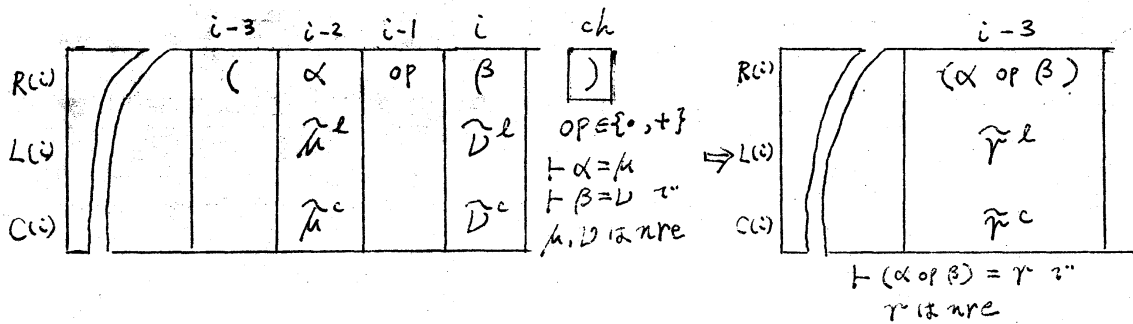 i-3 i-2 i-1 i ch
R(i) ( α op β )
L(i) μ̃ˡ ν̃ˡ
C(i) μ̃ᶜ ν̃ᶜ
op∈{•,+}
⊢ α = μ
⊢ β = ν で
μ, ν は nre
⇒
i-3
R(i) (α op β)
L(i) γ̃ˡ
C(i) γ̃ᶜ
⊢ (α op β) = γ で
γ は nre